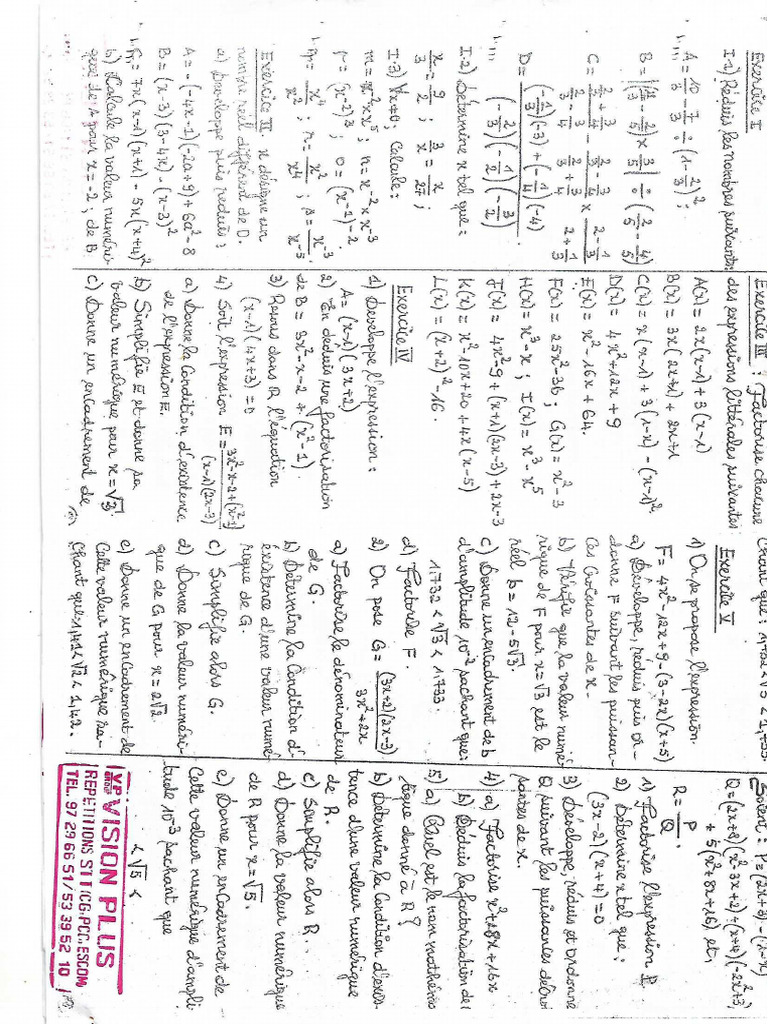 Exercice I
I-1) Réduis les nombres suivants:
A = 10/3 - 7/3 ÷ (1 - 2/3)² ;
B = [(11/3 - 2/4) × 3/5] ÷ (2/5 - 4/5)
C = (2/3 + 3/4)/(2/3 - 3/4) - (2/3 - 3/4)/(2/3 + 3/4) × (2 - 1/3)/(2 + 1/3)
D = ((-1/3)(-3) + (-1/4)(-4))/((-2/3)(-1/2)(-3/2))
I-2) Détermine x tel que :
x/3 = 9/2 ; 3/x = x/25 ;
I-3) ∀x≠0; Calcule :
m = x⁻² × x⁵ ; n = x⁻² × x³
r = (x⁻²)³ ; o = (x⁻¹)⁻²
q = x⁴/x² ; r = x²/x⁴ ; s = x⁻³/x⁻⁵
Exercice II x désigne un
nombre réel différent de 0.
a) Développe puis réduis :
A = -(-4x-1)(-2a+9) + 6a² - 8
B = (x-3)(3-4x) - (x-3)²
C = 7x(x-1)(x+1) - 5x(x+4)²
b) Calcule la valeur numéri-
que de A pour x = -2 ; de B
Exercice III : Factorise chacune
des expressions littérales suivantes:
A(x) = 2x(x-1) + 3(x-1)
B(x) = 3x(2x+1) + 2x+1
C(x) = x(x-1) + 3(1-x) - (x-1)²
D(x) = 4x² + 12x + 9
E(x) = x² - 16x + 64.
F(x) = 25x² - 36 ; G(x) = x² - 3
H(x) = x³ - x ; I(x) = x³ - x⁵
J(x) = 4x² - 9 + (x+1)(2x-3) + 2x-3
K(x) = x² - 10x + 20 + 4x(x-5)
L(x) = (x+2)² - 16.
Exercice IV
1) Développe l'expression :
A = (x-1)(3x+2)
2) En déduis une factorisation
de B = 3x² - x - 2 + (x² - 1).
3) Resous dans R l'équation
(x-1)(4x+3) = 0
4) Soit l'expression E = (3x²-x-2+(x²-1))/((x-1)(2x-3))
a) Donne la Condition d'existence
de l'expression E.
b) Simplifie E et donne sa
valeur numérique pour x = √3.
c) Donne un encadrement de
Chant que : 1,732 < √3 < 1,733.
Exercice V
1) On se propose l'expression
F = 4x² - 12x + 9 - (3-2x)(x+5)
a) Développe, réduis puis or-
donne F suivant les puissan-
ces Croissantes de x.
b) Vérifie que la valeur numé-
rique de F pour x = √3 est le
réel b = 12 - 5√3.
c) Donne un encadrement de b
d'amplitude 10⁻² sachant que :
1,732 < √3 < 1,733.
d) Factorise F.
2) On pose G = (3x+2)(2x-3)/(3x²+2x)
a) Factorise le dénominateur
de G.
b) Détermine la Condition d'-
éxistence d'une valeur numé-
rique de G.
c) Simplifie alors G.
d) Donne la valeur numéri-
que de G pour x = 2√2
e) Donne un encadrement de
Cette valeur numérique sa-
Chant que 1,41 < √2 < 1,42.
Soient : P = (2x+3) - (1-x)
Q = (2x+8)(x² 3x+2) + (x+4)(-2x²+3)
+ 5(x²+8x+16), et
R = P/Q.
1) Factorise l'expression P.
2) Détermine x tel que :
(3x-2)(x+4) = 0
3) Développe, réduis et Ordonne
Q suivant les puissances décroi
ssantes de x.
4) a) Factorise x²+8x+16x
b) Déduis la factorisation de
5) a) Quel est le nom mathéma
tique donné à R ?
b) Détermine la Condition d'exis-
tence d'une valeur numérique
de R.
c) Simplifie alors R.
d) Donne la valeur numérique
de R pour x = √5.
e) Donne un encadrement de
Cette valeur numérique d'ampli
tude 10⁻³ sachant que
< √5 <
VISION PLUS
REPETITIONS STI
TEL. 97 29 66 51 / 53 39 52 10